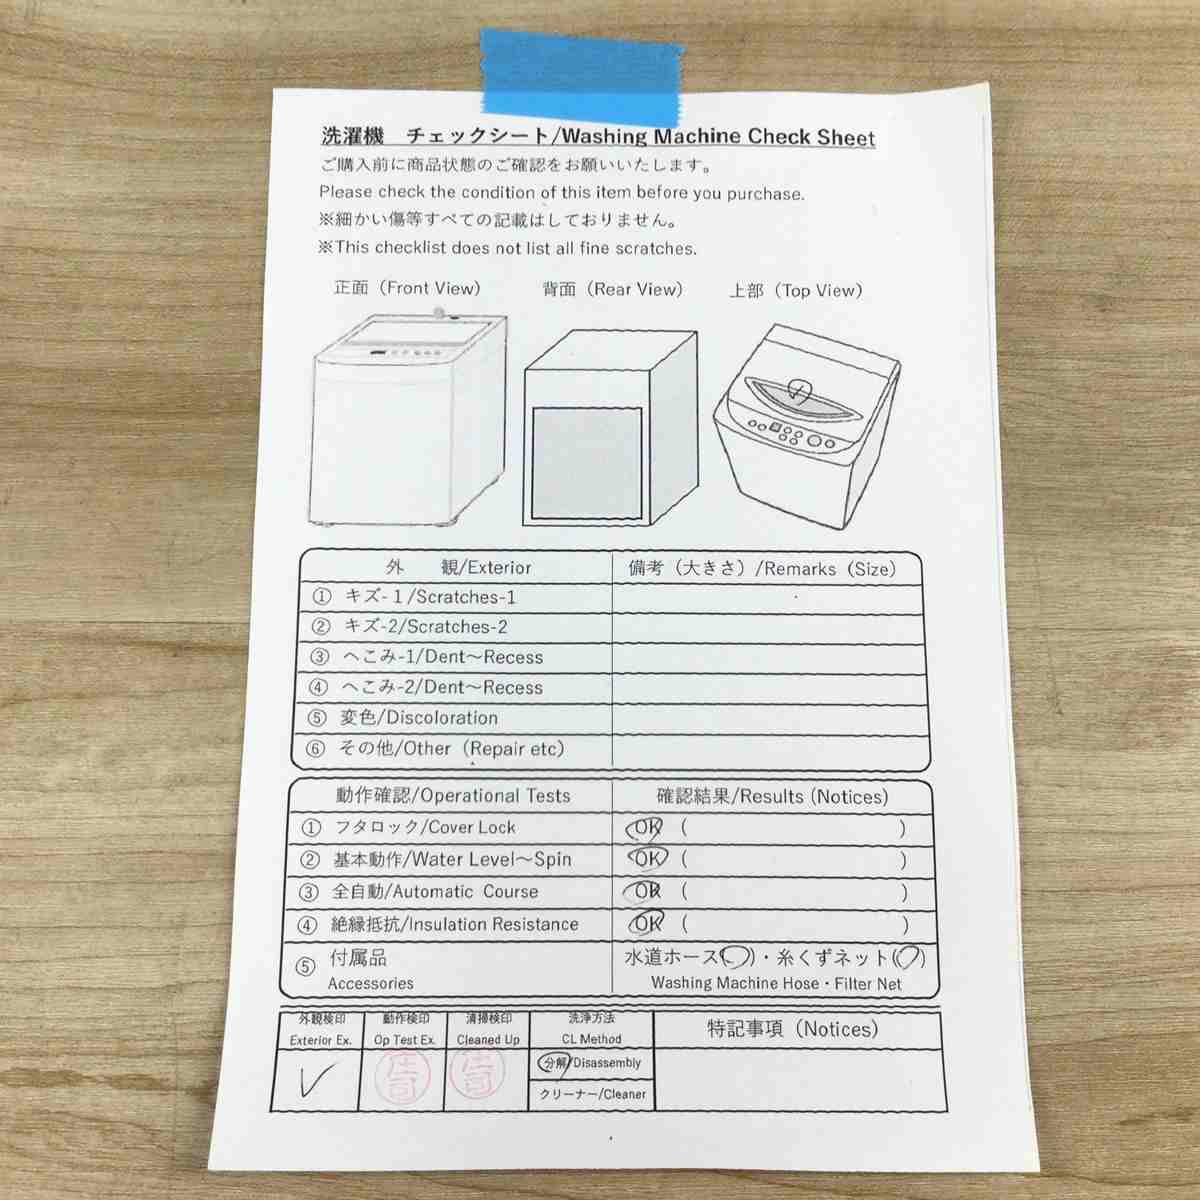 洗濯機 チェックシート/Washing Machine Check Sheet
ご購入前に商品状態のご確認をお願いいたします。
Please check the condition of this item before you purchase.
※細かい傷等すべての記載はしておりません。
※This checklist does not list all fine scratches.
正面（Front View） 背面（Rear View） 上部（Top View）
外 観/Exterior 備考（大きさ）/Remarks（Size）
① キズ-１/Scratches-1
② キズ-2/Scratches-2
③ へこみ-1/Dent～Recess
④ へこみ-2/Dent～Recess
⑤ 変色/Discoloration
⑥ その他/Other（Repair etc）
動作確認/Operational Tests 確認結果/Results (Notices)
① フタロック/Cover Lock OK ( )
② 基本動作/Water Level～Spin OK ( )
③ 全自動/Automatic Course OK ( )
④ 絶縁抵抗/Insulation Resistance OK ( )
⑤ 付属品 水道ホース(○)・糸くずネット(○)
Accessories Washing Machine Hose・Filter Net
外観検印 動作検印 清掃検印 洗浄方法 特記事項（Notices）
Exterior Ex. Op Test Ex. Cleaned Up CL Method
✓ 庄司 庄司 分解/Disassembly
クリーナー/Cleaner